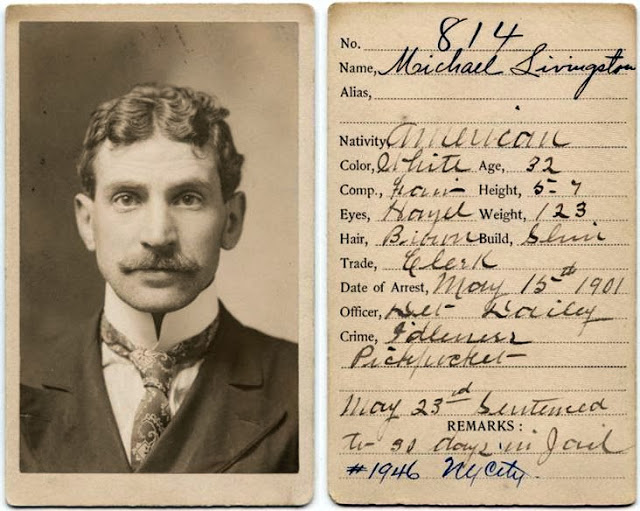 No. 814
Name, Michael Livingston
Alias,
Nativity American
Color, White Age, 32
Comp., Fair Height, 5-7
Eyes, Hazel Weight, 123
Hair, Brown Build, Slim
Trade, Clerk
Date of Arrest, May 15th 1901
Officer, Det Dailey
Crime, Idleness
Pickpocket
May 23rd Sentenced
REMARKS:
to 30 days in Jail
#1946 NYCity.